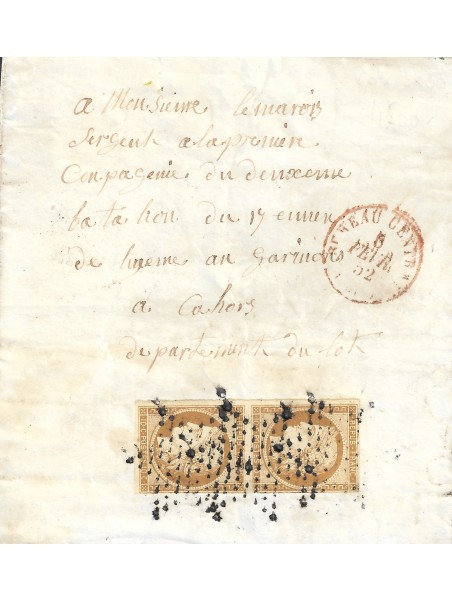 a Monsieure lemarois
Sergent a la première
Conpagenie du deuxeme
batalion du 17 eunien
de lineme an Garnison
a Cahors
departement du lot
BUREAU CENTRAL
5
FEVR.
52